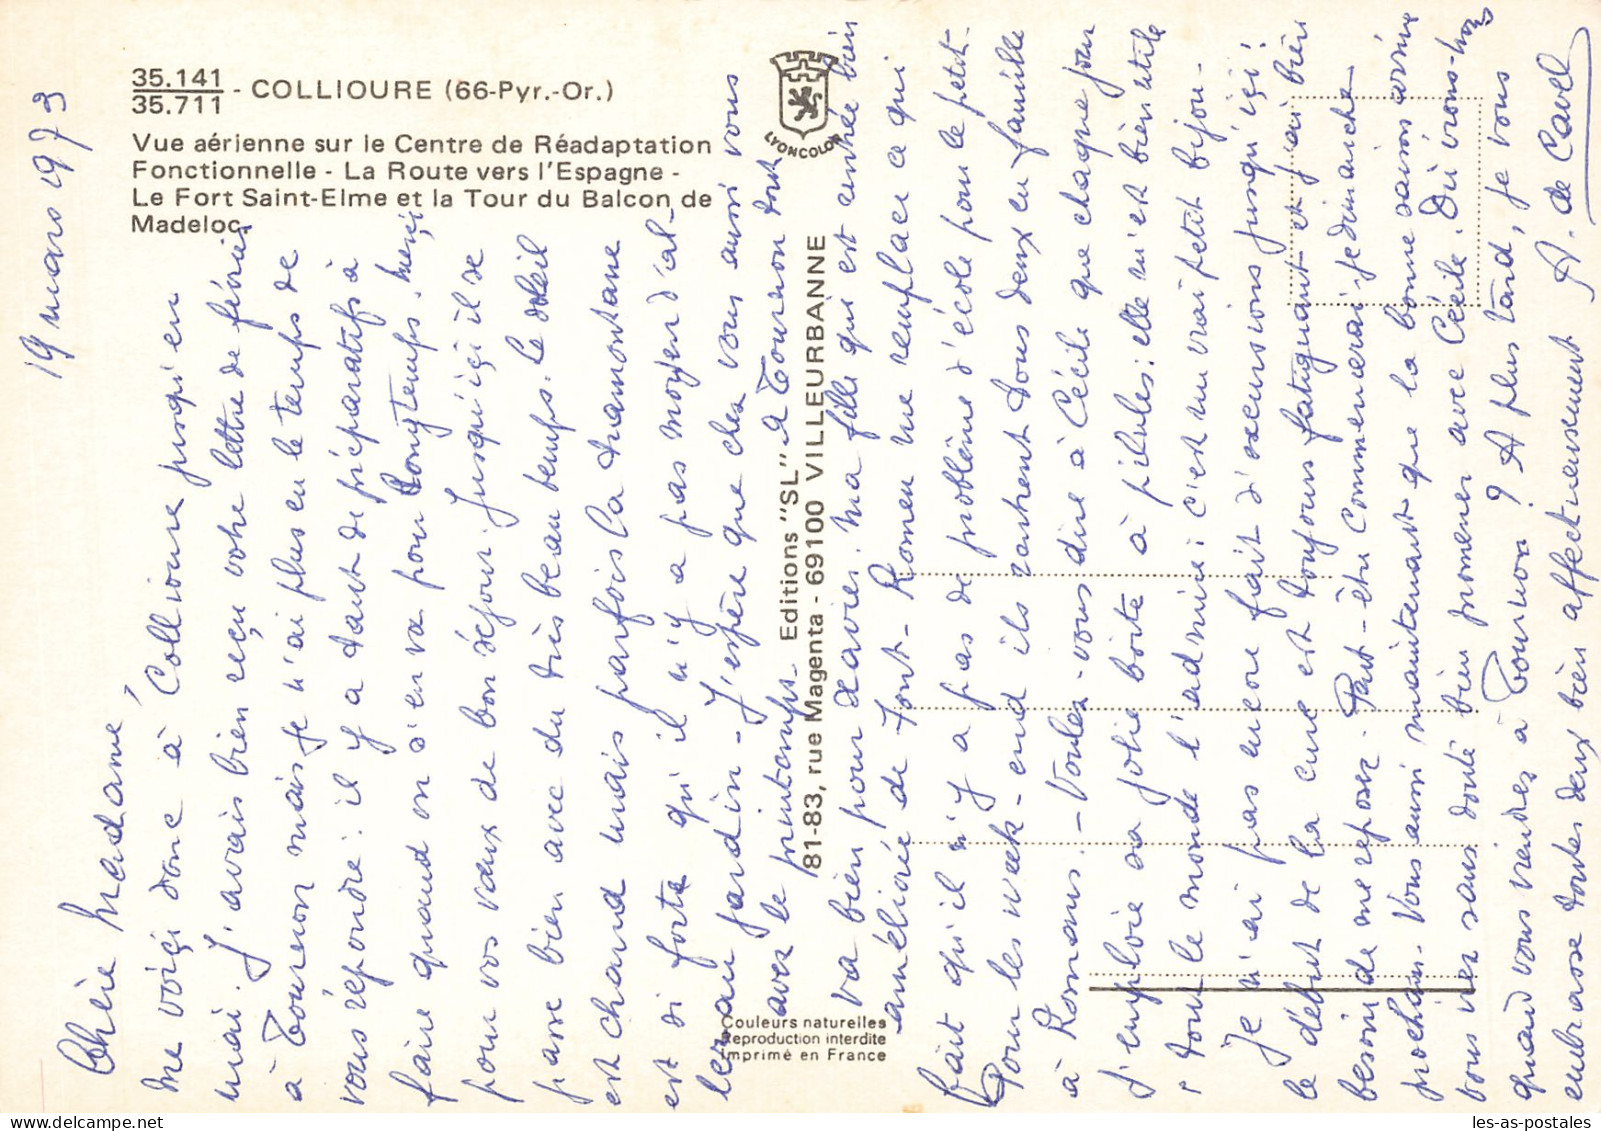 35.141
35.711 - COLLIOURE (66-Pyr.-Or.)
Vue aérienne sur le Centre de Réadaptation
Fonctionnelle - La Route vers l'Espagne -
Le Fort Saint-Elme et la Tour du Balcon de
Madeloc.
LYONCOLOR
Editions "SL"
81-83, rue Magenta - 69100 VILLEURBANNE
Couleurs naturelles
Reproduction interdite
Imprimé en France
19 mars 1973
Chère Madame,
me voiçi donc à Collioure jusqu'en
mai. J'avais bien reçu votre lettre de février
à Tournon mais je n'ai plus eu le temps de
vous répondre: il y a tant de préparatifs à
faire quand on s'en va pour longtemps. Merçi
pour vos vœux de bon séjour. Jusqu'içi il se
passe bien avec du très beau temps. Le soleil
est chaud mais parfois la tramontane
est si forte qu'il n'y a pas moyen d'al-
ler au jardin - J'espère que chez vous aussi vous
avez le printemps. à Tournon tout
va bien pour Xavier. Ma fille qui est entrée bien
améliorée de Font-Romeu me remplace ce qui
fait qu'il n'y a pas de problème d'école pour le petit.
Pour les week-end ils rentrent tous deux en famille
à Romans. - Voulez-vous dire à Cécile que chaque jour
j'emploie sa jolie boîte à pilules: elle m'est bien utile
et tout le monde l'admire: c'est un vrai petit bijou -
Je n'ai pas encore fait d'excursions jusqu'içi:
le début de la cure est toujours fatiguant et j'ai bien
besoin de me reposer. Peut-être commencerai-je dimanche
prochain. Vous aussi maintenant que la bonne saison arrive
vous irez sans doute bien promener avec Cécile. Où irons-nous
quand vous viendrez à Tournon? A plus tard, je vous
embrasse toutes deux bien affectueusement A. de Cavel
les-as-postales